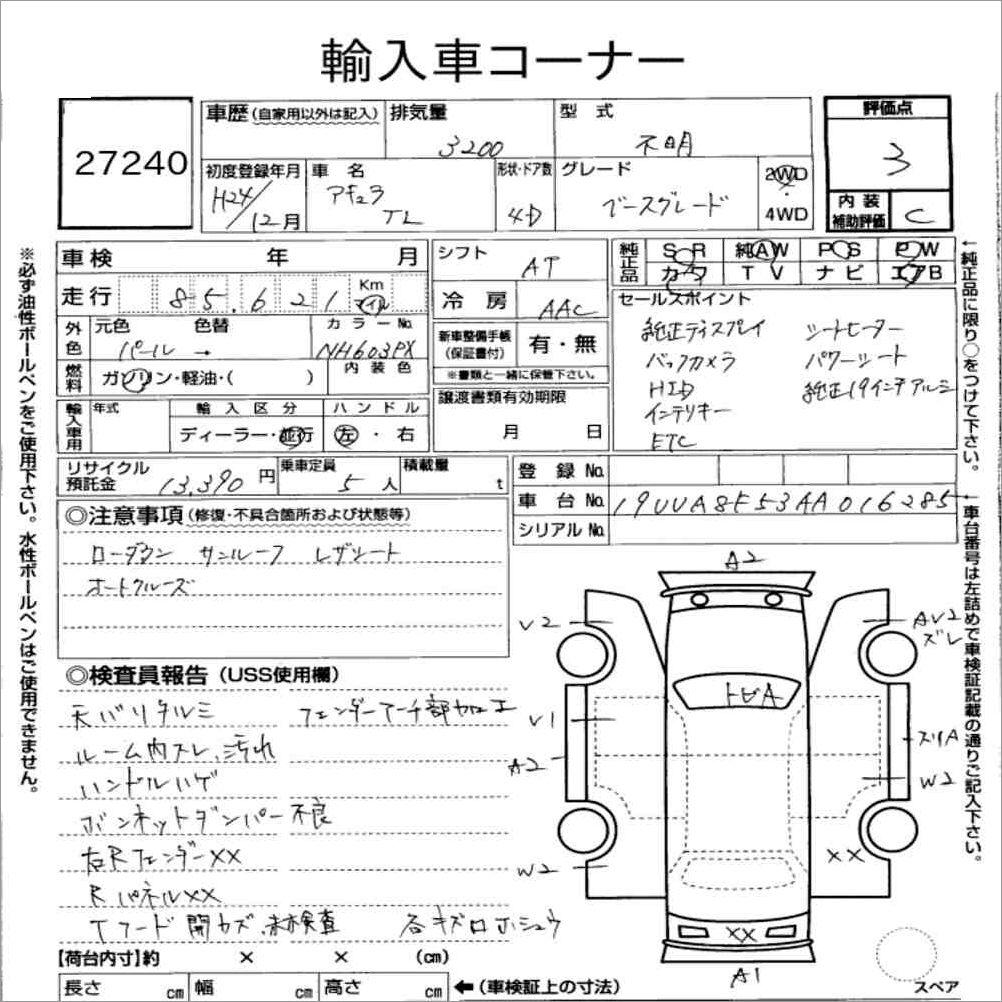 輸入車コーナー
27240
車歴(自家用以外は記入) 排気量 3200 型式 不明
評価点 3
初度登録年月 H24/12月 車名 アキュラ TL 形状・ドア数 4D グレード ベースグレード 2WD 4WD
内装補助評価 C
車検 年 月 シフト AT 純正品 S R 純AW P S P W
カワ T V ナビ エアB
走行 85,621 Km マイル 冷房 AAC セールスポイント
外色 元色 色替 カラーNo. パール → NH603PX
新車整備手帳(保証書付) 有・無
※書類と一緒に保管下さい。
純正ディスプレイ シートヒーター
バックカメラ パワーシート
HID 純正19インチアルミ
インテリキー
ETC
燃料 ガソリン・軽油・( ) 内装色
譲渡書類有効期限 月 日
輸入車用 年式 輸入区分 ハンドル
ディーラー・並行 左・右
リサイクル預託金 13,390円 乗車定員 5人 積載量 t
登録No.
車台No. 19UUA8F53AA016285
シリアルNo.
◎注意事項(修復・不具合箇所および状態等)
ローダウン サンルーフ レザシート
オートクルーズ
◎検査員報告(USS使用欄)
天バリタルミ フェンダーアーチ部加工
ルーム内スレ、汚れ
ハンドルハゲ
ボンネットダンパー不良
右RフェンダーXX
RパネルXX
Tフード開カズ、未検査 各キズロホシュウ
【荷台内寸】約 × × (cm)
長さ cm 幅 cm 高さ cm ←(車検証上の寸法)
A2
V2
AV2
ズレ
トビA
V1
A2
スリA
W2
W2
XX
XX
A1
スペア
※必ず油性ボールペンをご使用下さい。水性ボールペンはご使用できません。
↑純正品に限り○をつけて下さい。
↑車台番号は左詰めで車検証記載の通りご記入下さい。